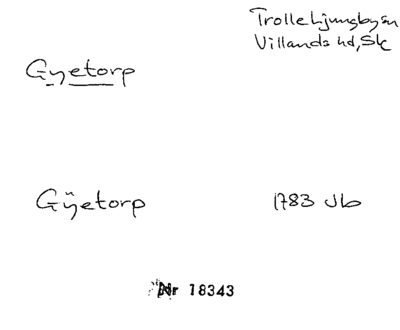 Trolle Ljungbysn
Villands hd, Sk
Gyetorp
Gÿetorp 1783 Jb
Nr 18343